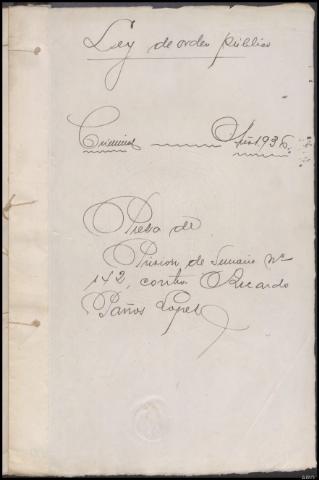 Ley de orden público
Criminal Año 1936.
Pieza de
Prision de Sumario nº
142, contra Ricardo
Paños Lopez